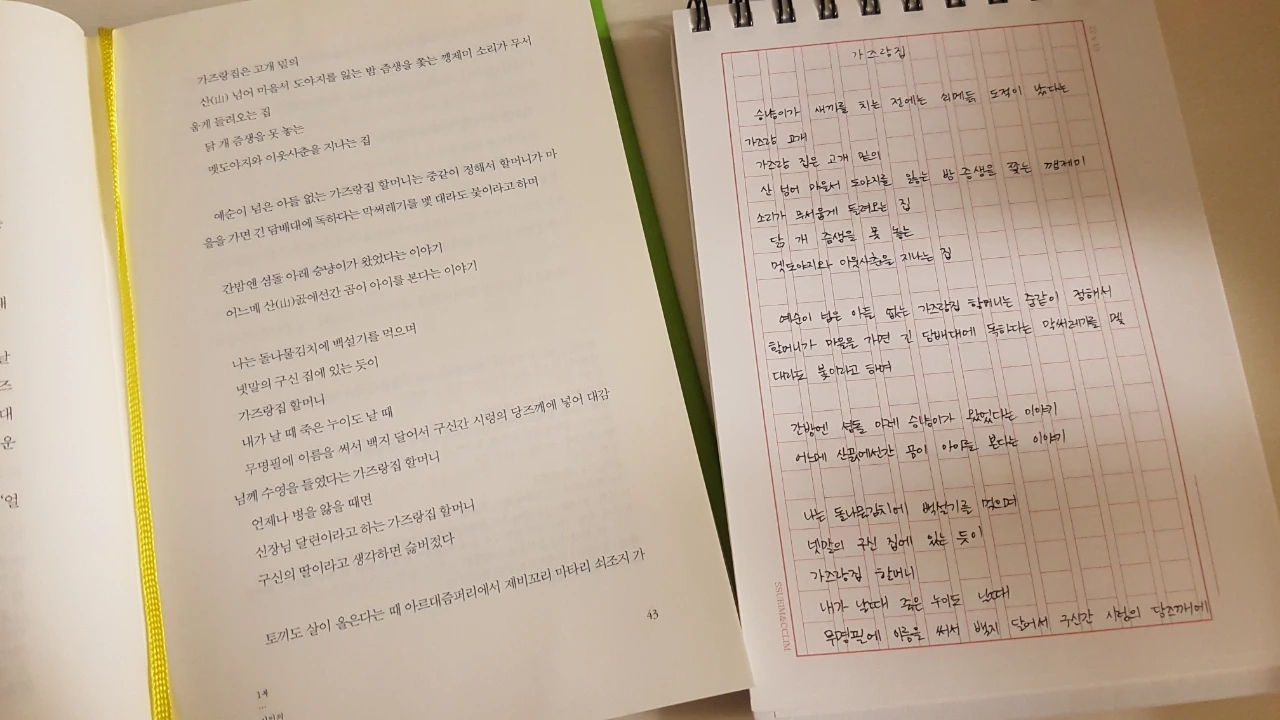 가즈랑집은 고개 밑의
산(山) 넘어 마을서 도야지를 잃는 밤 즘생을 쫓는 깽제미 소리가 무서
웁게 들려오는 집
닭 개 즘생을 못 놓는
멧도야지와 이웃사춘을 지나는 집
예순이 넘은 아들 없는 가즈랑집 할머니는 중같이 정해서 할머니가 마
을을 가면 긴 담배대에 독하다는 막써레기를 멫 대라도 붗이라고 하며
간밤엔 섬돌 아래 승냥이가 왔었다는 이야기
어느메 산(山)곬에선간 곰이 아이를 본다는 이야기
나는 돌나물김치에 백설기를 먹으며
넷말의 구신 집에 있는 듯이
가즈랑집 할머니
내가 날 때 죽은 누이도 날 때
무명필에 이름을 써서 백지 달어서 구신간 시렁의 당즈깨에 넣어 대감
님께 수영을 들였다는 가즈랑집 할머니
언제나 병을 앓을 때면
신장님 달련이라고 하는 가즈랑집 할머니
구신의 딸이라고 생각하면 슳버졌다
토끼도 살이 올은다는 때 아르대즘퍼리에서 제비꼬리 마타리 쇠조지 가
43
1부
대
운
가즈랑집
승냥이가 새끼를 치는 전에는 쇠메듦 도적이 났다는
가즈랑 고개
가즈랑 집은 고개 밑의
산 넘어 마을서 도야지를 잃는 밤 즘생을 쫓는 깽제미
소리가 무서웁게 들려오는 집
닭 개 즘생을 못 놓는
멧도야지와 이웃사춘을 지나는 집
예순이 넘은 아들 없는 가즈랑집 할머니는 중같이 정해서
할머니가 마을을 가면 긴 담배대에 독하다는 막써레기를 멫
대라도 붗이라고 하며
간밤엔 섬돌 아래 승냥이가 왔었다는 이야기
어느메 산곬에선간 곰이 아이를 본다는 이야기
나는 돌나물김치에 백설기를 먹으며
넷말의 구신 집에 있는 듯이
가즈랑집 할머니
내가 날때 죽은 누이도 날때
무명필에 이름을 써서 백지 달어서 구신간 시렁의 당즈깨에
SSUEIM&CCLIM